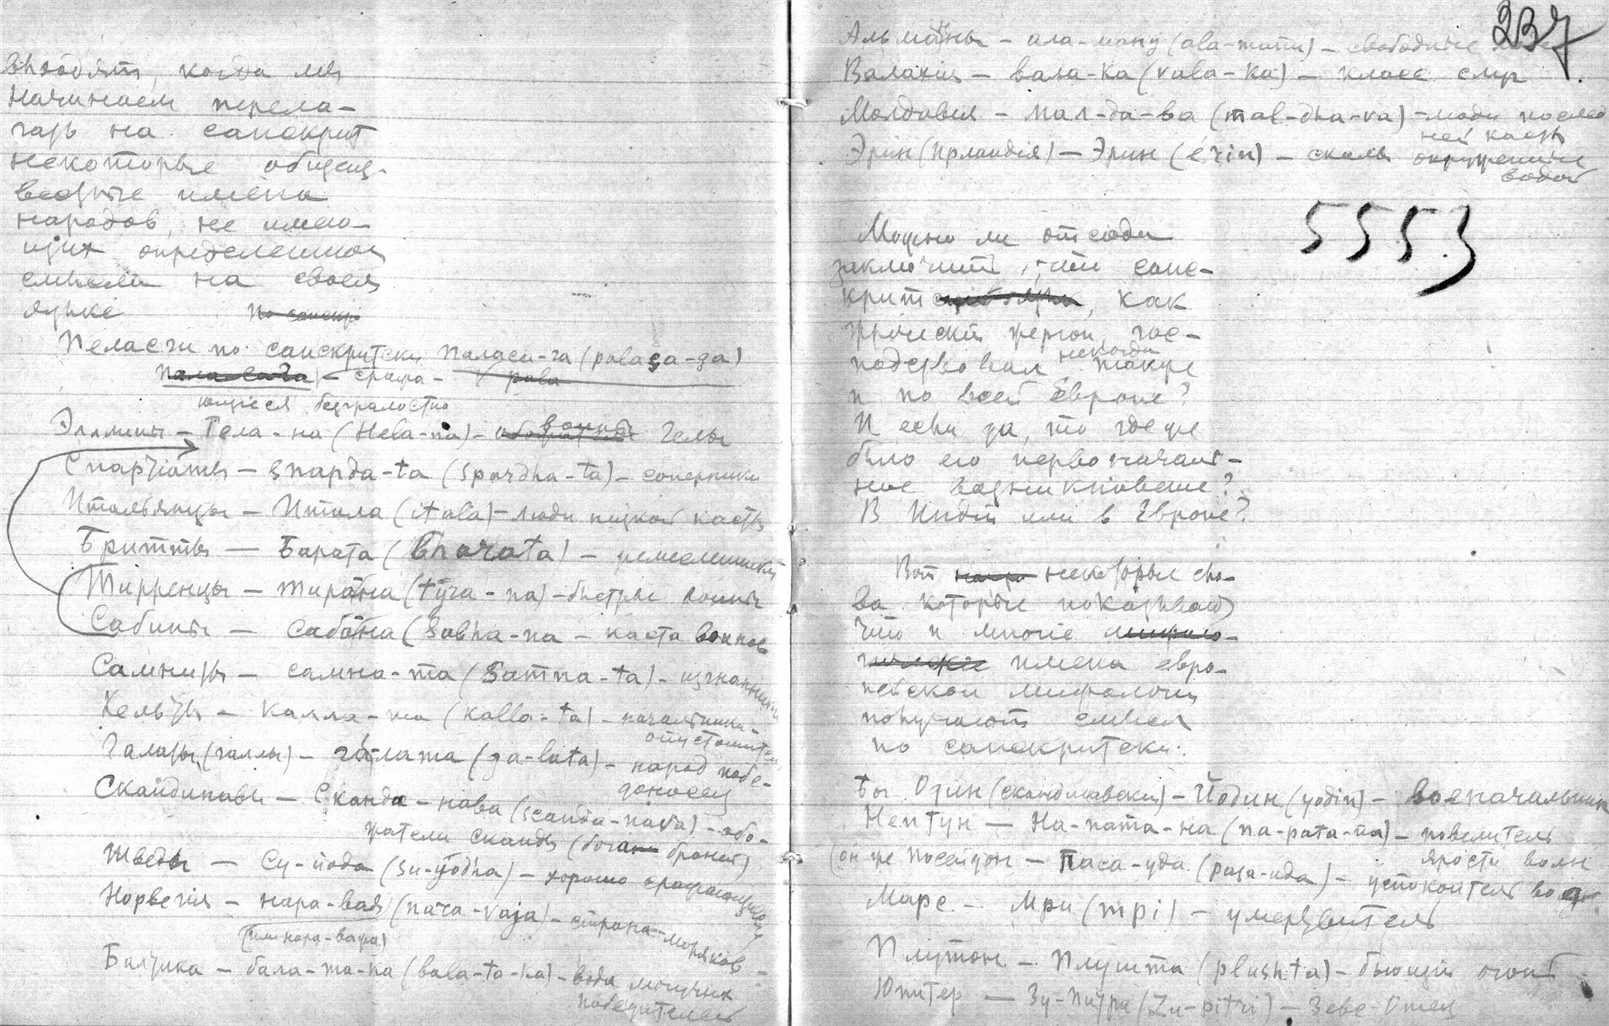 выходят, когда мы
начинаем перела-
гать на санскрит
некоторые общеиз-
вестные имена
народов, не имею-
щих определенного
смысла на своем
языке
По санскр
Пеласги по санскритски паласа-га (palaça-ga)
сража-
ющиеся безжалостно
Эллины – Гела-на (Hela-na) – воины Гелы
Спартиаты – Спарда-та (Spardha-ta) – соперники
Итальянцы – Итала (itala) – люди низкой касты
Бритты – Барата (bharata) – ремесленники
Тирренцы – тирана (tura-na) – быстрые воины
Сабины – сабана (Sabha-na – каста воинов
Самниты – самна-та (Samna-ta) – изгнанники
Кельты – калла-та (kalla-ta) – начальники-
опустошители
Галаты (галлы) – га-лата (ga-lata) – народ побе-
доносец
Скандинавы – Сканда-нава (scanda-nava) – обо-
жатели Сканды (бога браней)
Шведы – Су-йода (Su-yodha) – хорошо сражающиеся
Норвегия – нара-вая (nara-vaja) – страна моряков
(или нара-важа)
Балтика – бала-та-ка (bala-ta-ka) – вода могучих
победителей
237
Альманы – ала-ману (ala-manu) – свободные
Валахия – вала-ка (vala-ka) – класс слуг
Молдавия – мал-да-ва (mal-dha-va) – люди послед
ней касты
Эрин (Ирландия) – Эрин (erin) – скалы окруженные
водой
5553
Можно ли отсюда
заключить, что санс-
крит, как
жреческий жергон, гос-
подствовал некогда также
и по всей Европе?
И если да, то где же
было его первоначаль-
ное возникновение?
В Индии или в Европе?
Вот некоторые сло-
ва которые показывают
что и многие мифоло-
гические имена евро-
пейской мифологии
получают смысл
по санскритски:
Бог Один (скандинавский) – Йодин (yodin) – военачальник
Нептун – На-пата-на (na-pata-na) – повелитель
ярости волн
(он же Посейдон – Паса-уда (pasa-uda) – успокоитель вод
Марс – Мри (mri) – умертвитель
Плутон – Плушта (plushta) – бьющий огонь
Юпитер – Зу-питри (Zu-pitri) – Зевс-Отец